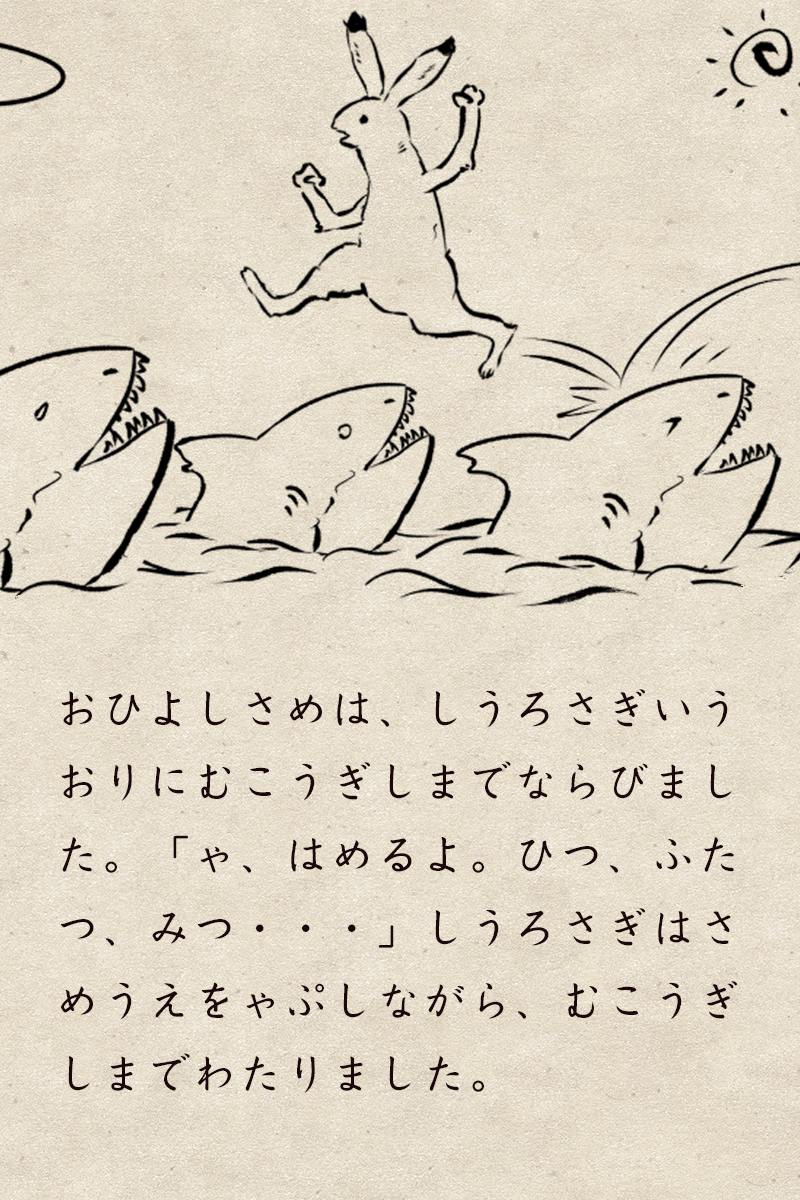 おひよしさめは、しうろさぎいう
おりにむこうぎしまでならびまし
た。「ゃ、はめるよ。ひつ、ふた
つ、みつ・・・」しうろさぎはさ
めうえをゃぷしながら、むこうぎ
しまでわたりました。